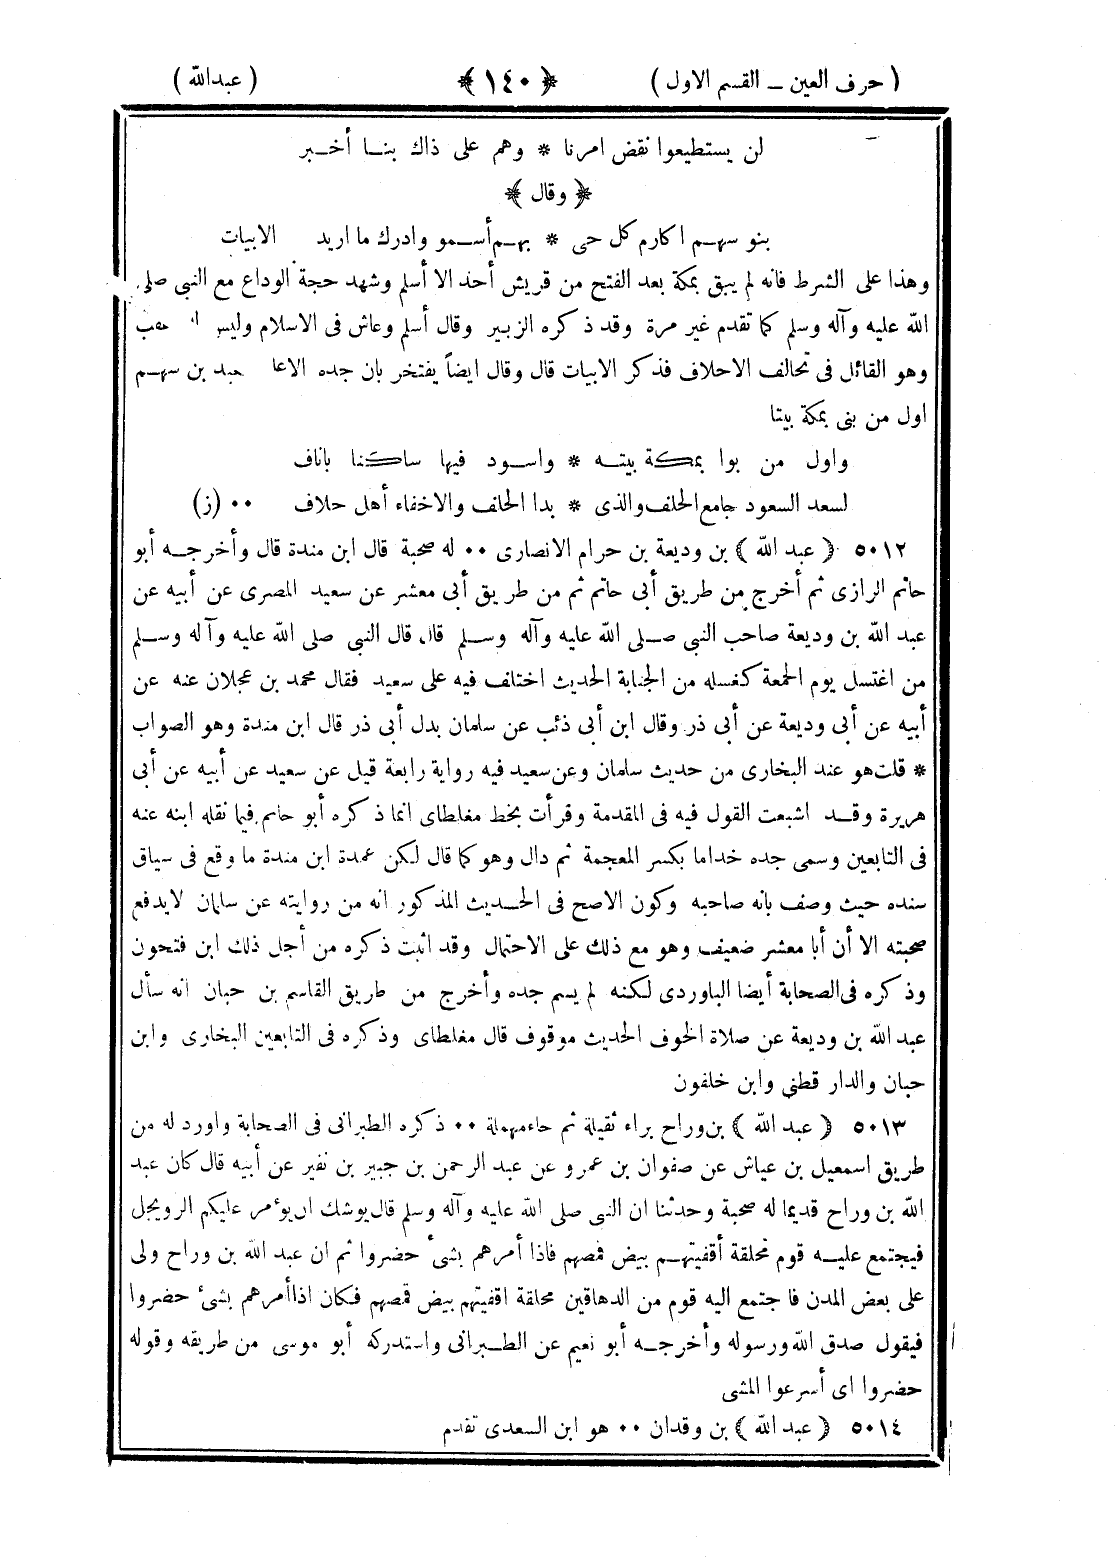 ( حرف العين ــ القسم الاول ) ﴿ ١٤٠ ﴾ ( عبدالله )
لن يستطيعوا نقض امرنا * وهم على ذاك بنــا أخــبر
﴿ وقال ﴾
بنو سهــم اكارم كل حى * بهــم أســمو وادرك ما اريد الابيات
وهذا على الشرط فانه لم يبق بمكة بعد الفتح من قريش أحد الا أسلم وشهد حجة الوداع مع النبى صلى
الله عليه وآله وسلم كما تقدم غير مرة وقد ذكره الزبير وقال أسلم وعاش فى الاسلام وليس
وهو القائل فى تحالف الاحلاف فذكر الابيات قال وقال ايضاً يفتخر بان جده بن سهــم
اول من بنى بمكة بيتا
واول من بوا بمكــة بيتــه * واســود فيها ساكنــا باناف
لسعد السعود جامع الحلف والذى * بدا الحلف والاخفاء أهل حلاف ٠٠ (ز)
٥٠١٢ ﴿ عبد الله ﴾ بن وديعة بن حرام الانصارى ٠٠ له صحبة قال ابن مندة قال وأخرجــه أبو
حاتم الرازى ثم أخرج من طريق أبى حاتم ثم من طريق أبى معشر عن سعيد المصرى عن أبيه عن
عبد الله بن وديعة صاحب النبى صــلى الله عليه وآله وســلم قال قال النبى صلى الله عليه وآله وســلم
من اغتسل يوم الجمعة كغسله من الجنابة الحديث اختلف فيه على سعيد فقال محمد بن عجلان عنه عن
أبيه عن أبى وديعة عن أبى ذر وقال ابن أبى ذئب عن سلمان بدل أبى ذر قال ابن مندة وهو الصواب
* قلت هو عند البخارى من حديث سلمان وعن سعيد فيه رواية رابعة قيل عن سعيد عن أبيه عن أبى
هريرة وقــد اشبعت القول فيه فى المقدمة وقرأت بخط مغلطاى انما ذكره أبو حاتم فيما نقله ابنه عنه
فى التابعين وسمى جده خداما بكسر المعجمة ثم دال وهو كما قال لكن عمدة ابن مندة ما وقع فى سياق
سنده حيث وصف بانه صاحبه وكون الاصح فى الحــديث المذكور انه من روايته عن سلمان لا يدفع
صحبته الا أن أبا معشر ضعيف وهو مع ذلك على الاحتمال وقد اثبت ذكره من أجل ذلك ابن فتحون
وذكره فى الصحابة أيضا الباوردى لكنه لم يسم جده وأخرج من طريق القاسم بن حبان انه سأل
عبد الله بن وديعة عن صلاة الخوف الحديث موقوف قال مغلطاى وذكره فى التابعين البخارى وابن
حبان والدار قطنى وابن خلفون
٥٠١٣ ﴿ عبد الله ﴾ بن وراح براء ثقيلة ثم حاء مهملة ٠٠ ذكره الطبرانى فى الصحابة واورد له من
طريق اسمعيل بن عياش عن صفوان بن عمرو عن عبد الرحمن بن جبير بن نفير عن أبيه قال كان عبد
الله بن وراح قديما له صحبة وحدثنا ان النبى صلى الله عليه وآله وسلم قال يوشك ان يؤمر عليكم الرويجل
فيجتمع عليــه قوم محلقة أقفيتهــم بيض قمصهم فاذا أمرهم بشىء حضروا ثم ان عبد الله بن وراح ولى
على بعض المدن فاجتمع اليه قوم من الدهاقين محلقة اقفيتهم بيض قمصهم فكان اذا أمرهم بشىء حضروا
فيقول صدق الله ورسوله وأخرجــه أبو نعيم عن الطــبرانى واستدركه أبو موسى من طريقه وقوله
حضروا اى أسرعوا المشى
٥٠١٤ ﴿ عبد الله ﴾ بن وقدان ٠٠ هو ابن السعدى تقدم